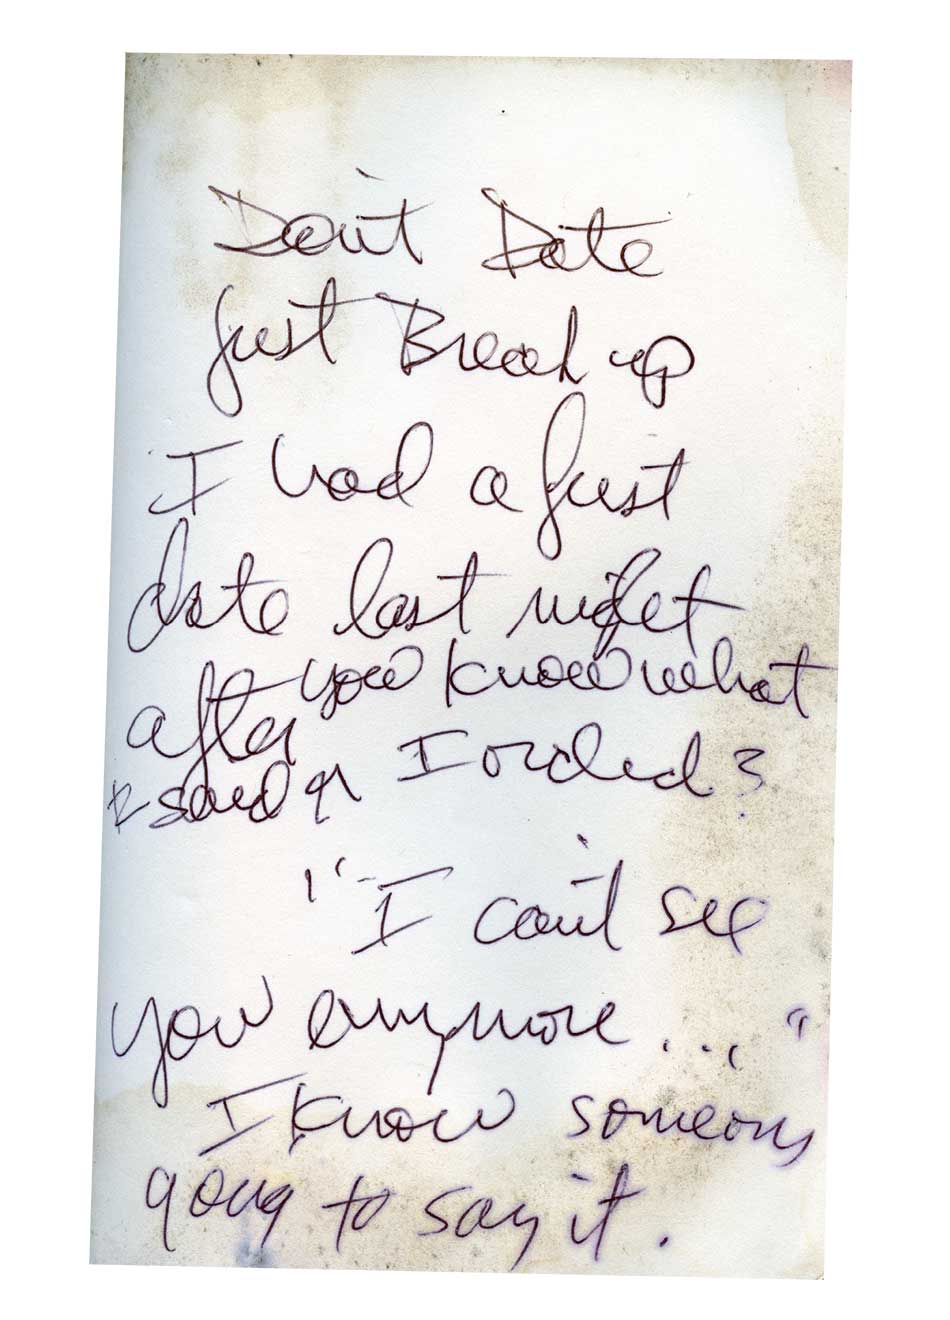 Don't Date
Just Break up
I had a first
date last night
after you know what
& said I orded?
"I can't see
you anymore..."
I know someons
going to say it.